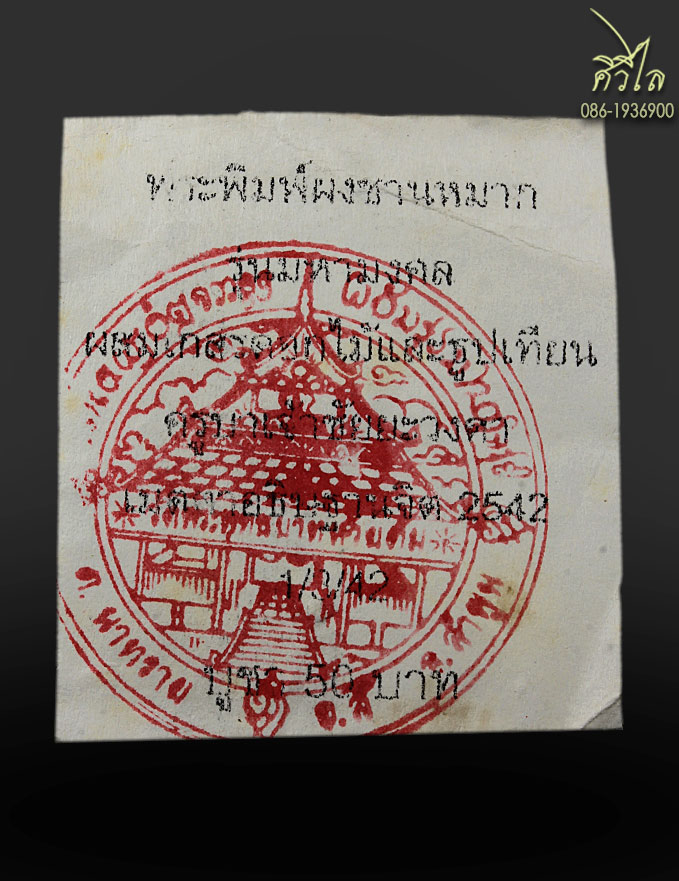 ศิวิไล
086-1936900
พระพิมพ์ผงชานหมาก
รุ่นมหามงคล
ผสมเกสรดอกไม้และธูปเทียน
ครูบาเจ้าชัยยะวงศา
เมตตาอธิษฐานจิต 2542
1/3/42
บูชา 50 บาท
ต. นาทราย
อ. ลี้
ลำพูน